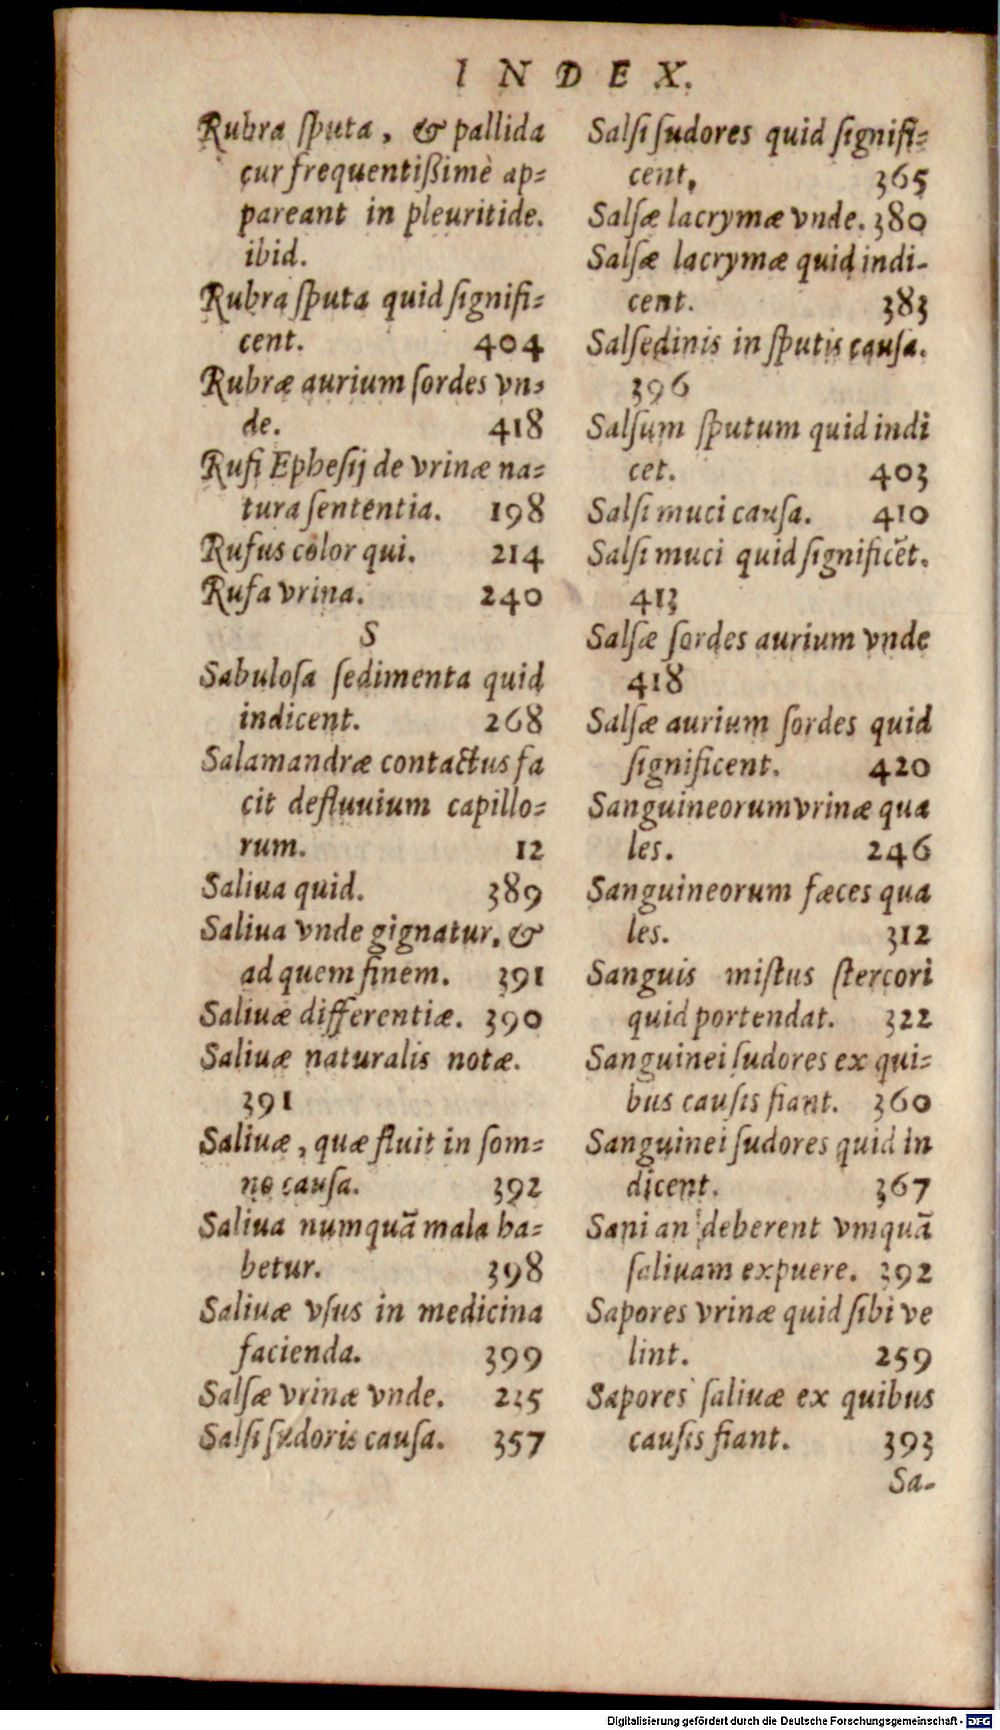 INDEX.
Rubra ſputa, & pallida
cur frequentißimè ap=
pareant in pleuritide.
ibid.
Rubra ſputa quid ſignifi=
cent. 404
Rubræ aurium ſordes vn=
de. 418
Rufi Epheſij de vrinæ na=
tura ſententia. 198
Rufus color qui. 214
Rufa vrina. 240
S
Sabuloſa ſedimenta quid
indicent. 268
Salamandræ contactus fa
cit defluuium capillo=
rum. 12
Saliua quid. 389
Saliua vnde gignatur, &
ad quem finem. 391
Saliuæ differentiæ. 390
Saliuæ naturalis notæ.
391
Saliuæ, quæ fluit in ſom=
no cauſa. 392
Saliua numquā mala ha=
betur. 398
Saliuæ vſus in medicina
facienda. 399
Salſæ vrinæ vnde. 235
Salſi ſudoris cauſa. 357
Salſi ſudores quid ſignifi=
cent. 365
Salſæ lacrymæ vnde. 380
Salſæ lacrymæ quid indi-
cent. 383
Salſedinis in ſputis cauſa.
396
Salſum ſputum quid indi
cet. 403
Salſi muci cauſa. 410
Salſi muci quid ſignificēt.
413
Salſæ ſordes aurium vnde
418
Salſæ aurium ſordes quid
ſignificent. 420
Sanguineorum vrinæ qua
les. 246
Sanguineorum fæces qua
les. 312
Sanguis miſtus ſtercori
quid portendat. 322
Sanguinei ſudores ex qui=
bus cauſis fiant. 360
Sanguinei ſudores quid in
dicent. 367
Sani an deberent vmquā
ſaliuam expuere. 392
Sapores vrinæ quid ſibi ve
lint. 259
Sapores ſaliuæ ex quibus
cauſis fiant. 393
Sa-
Digitalisierung gefördert durch die Deutsche Forschungsgemeinschaft - DFG